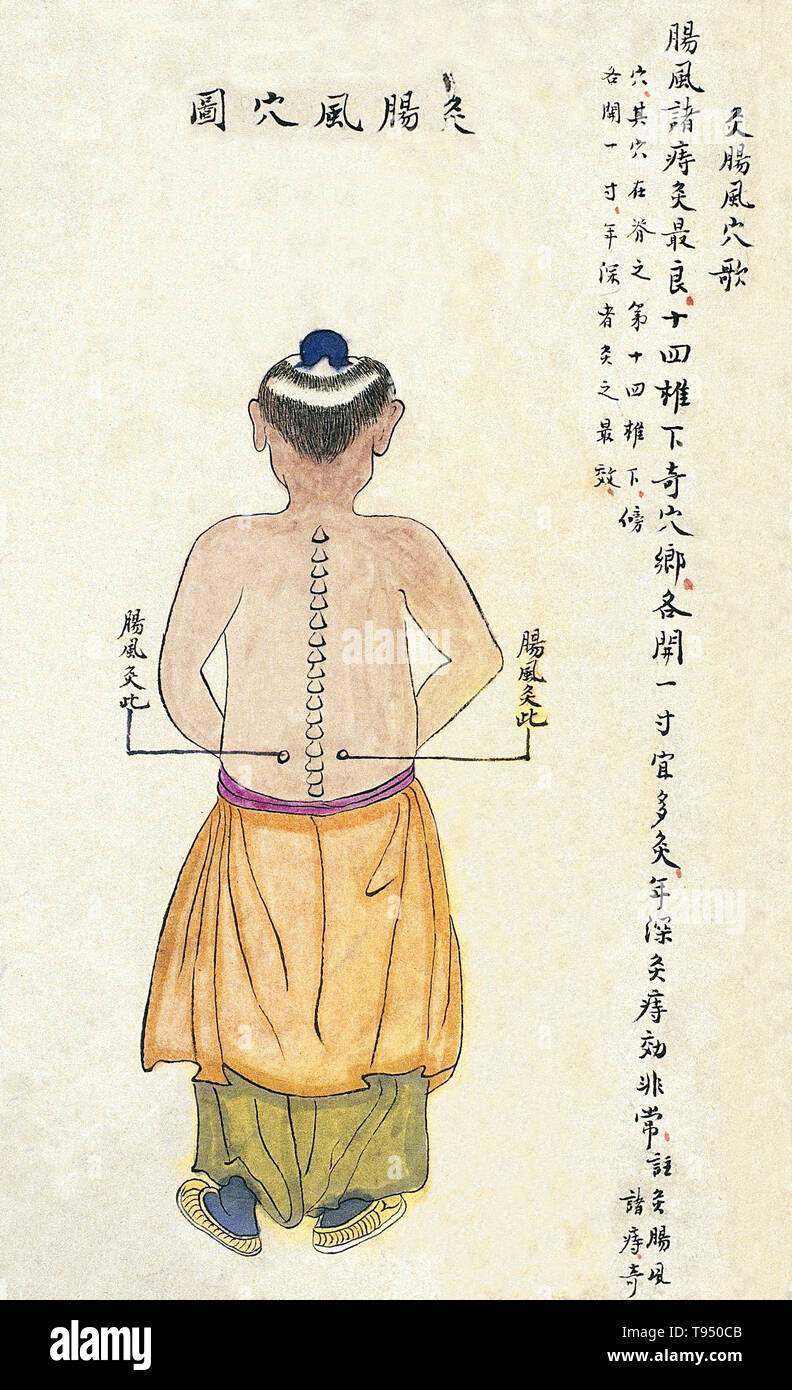 灸腸風穴歌
腸風諸痔灸最良十四椎下奇穴鄉各開一寸宜多灸年深灸痔効非常
註灸腸風
諸痔奇
穴其穴在脊之第十四椎下傍
各開一寸年深者灸之最效
灸腸風穴圖
腸風灸此
腸風灸此
alamy
alamy
alamy
alamy
a
a
a
a
a
alamy
Image ID: T950CB
www.alamy.com